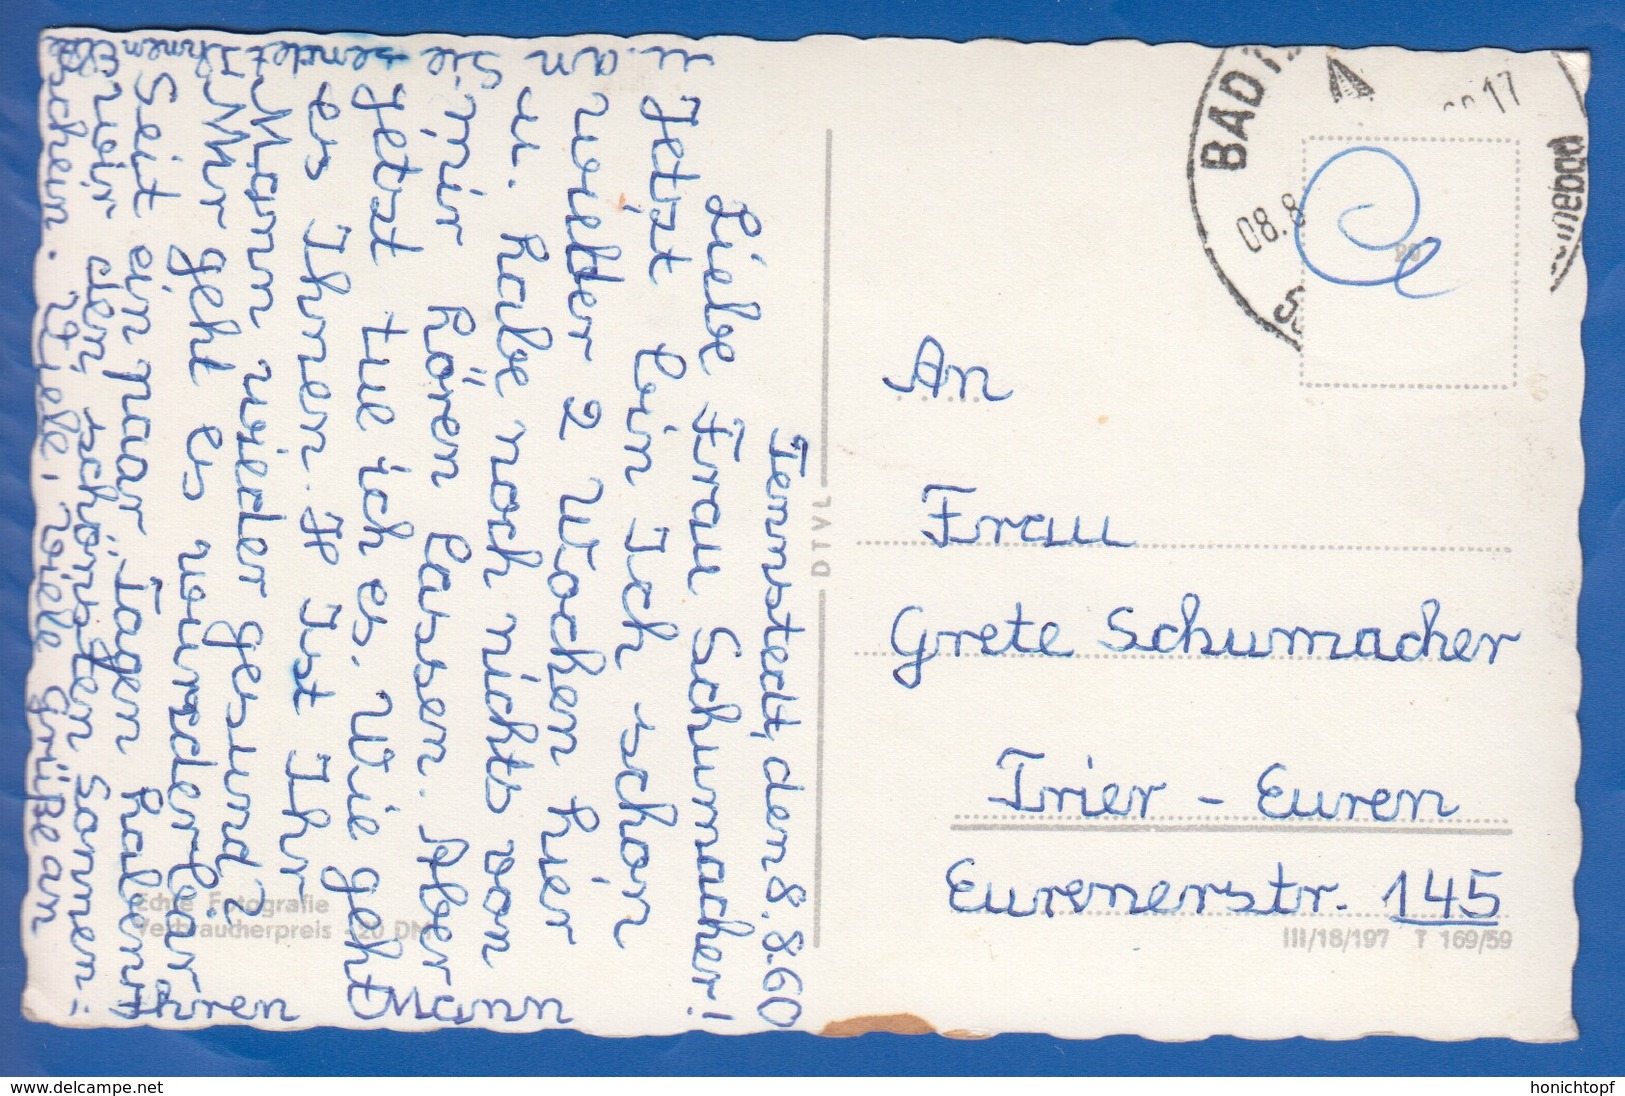 Tennstedt, den 8.8.60
Liebe Frau Schumacher!
Jetzt bin Ich schon
wieder 2 Wochen hier
u. habe noch nichts von
mir hören lassen. Aber
jetzt tue ich es. Wie geht
es Ihnen. Ist Ihr
Mann wieder gesund?
Mir geht es wunderbar.
Seit ein paar Tagen haben
wir den schönsten Sonnen:
schein. Viele, viele Grüße an
Ihren Mann
u. an Sie sendet Ihnen Elke
Echte Fotografie
Verbraucherpreis -20 DM
DTVJ
BAD
08.8
17
20
An
Frau
Grete Schumacher
Trier - Euren
Eurenerstr. 145
III/18/197 T 169/59
www.delcampe.net
honichtopf